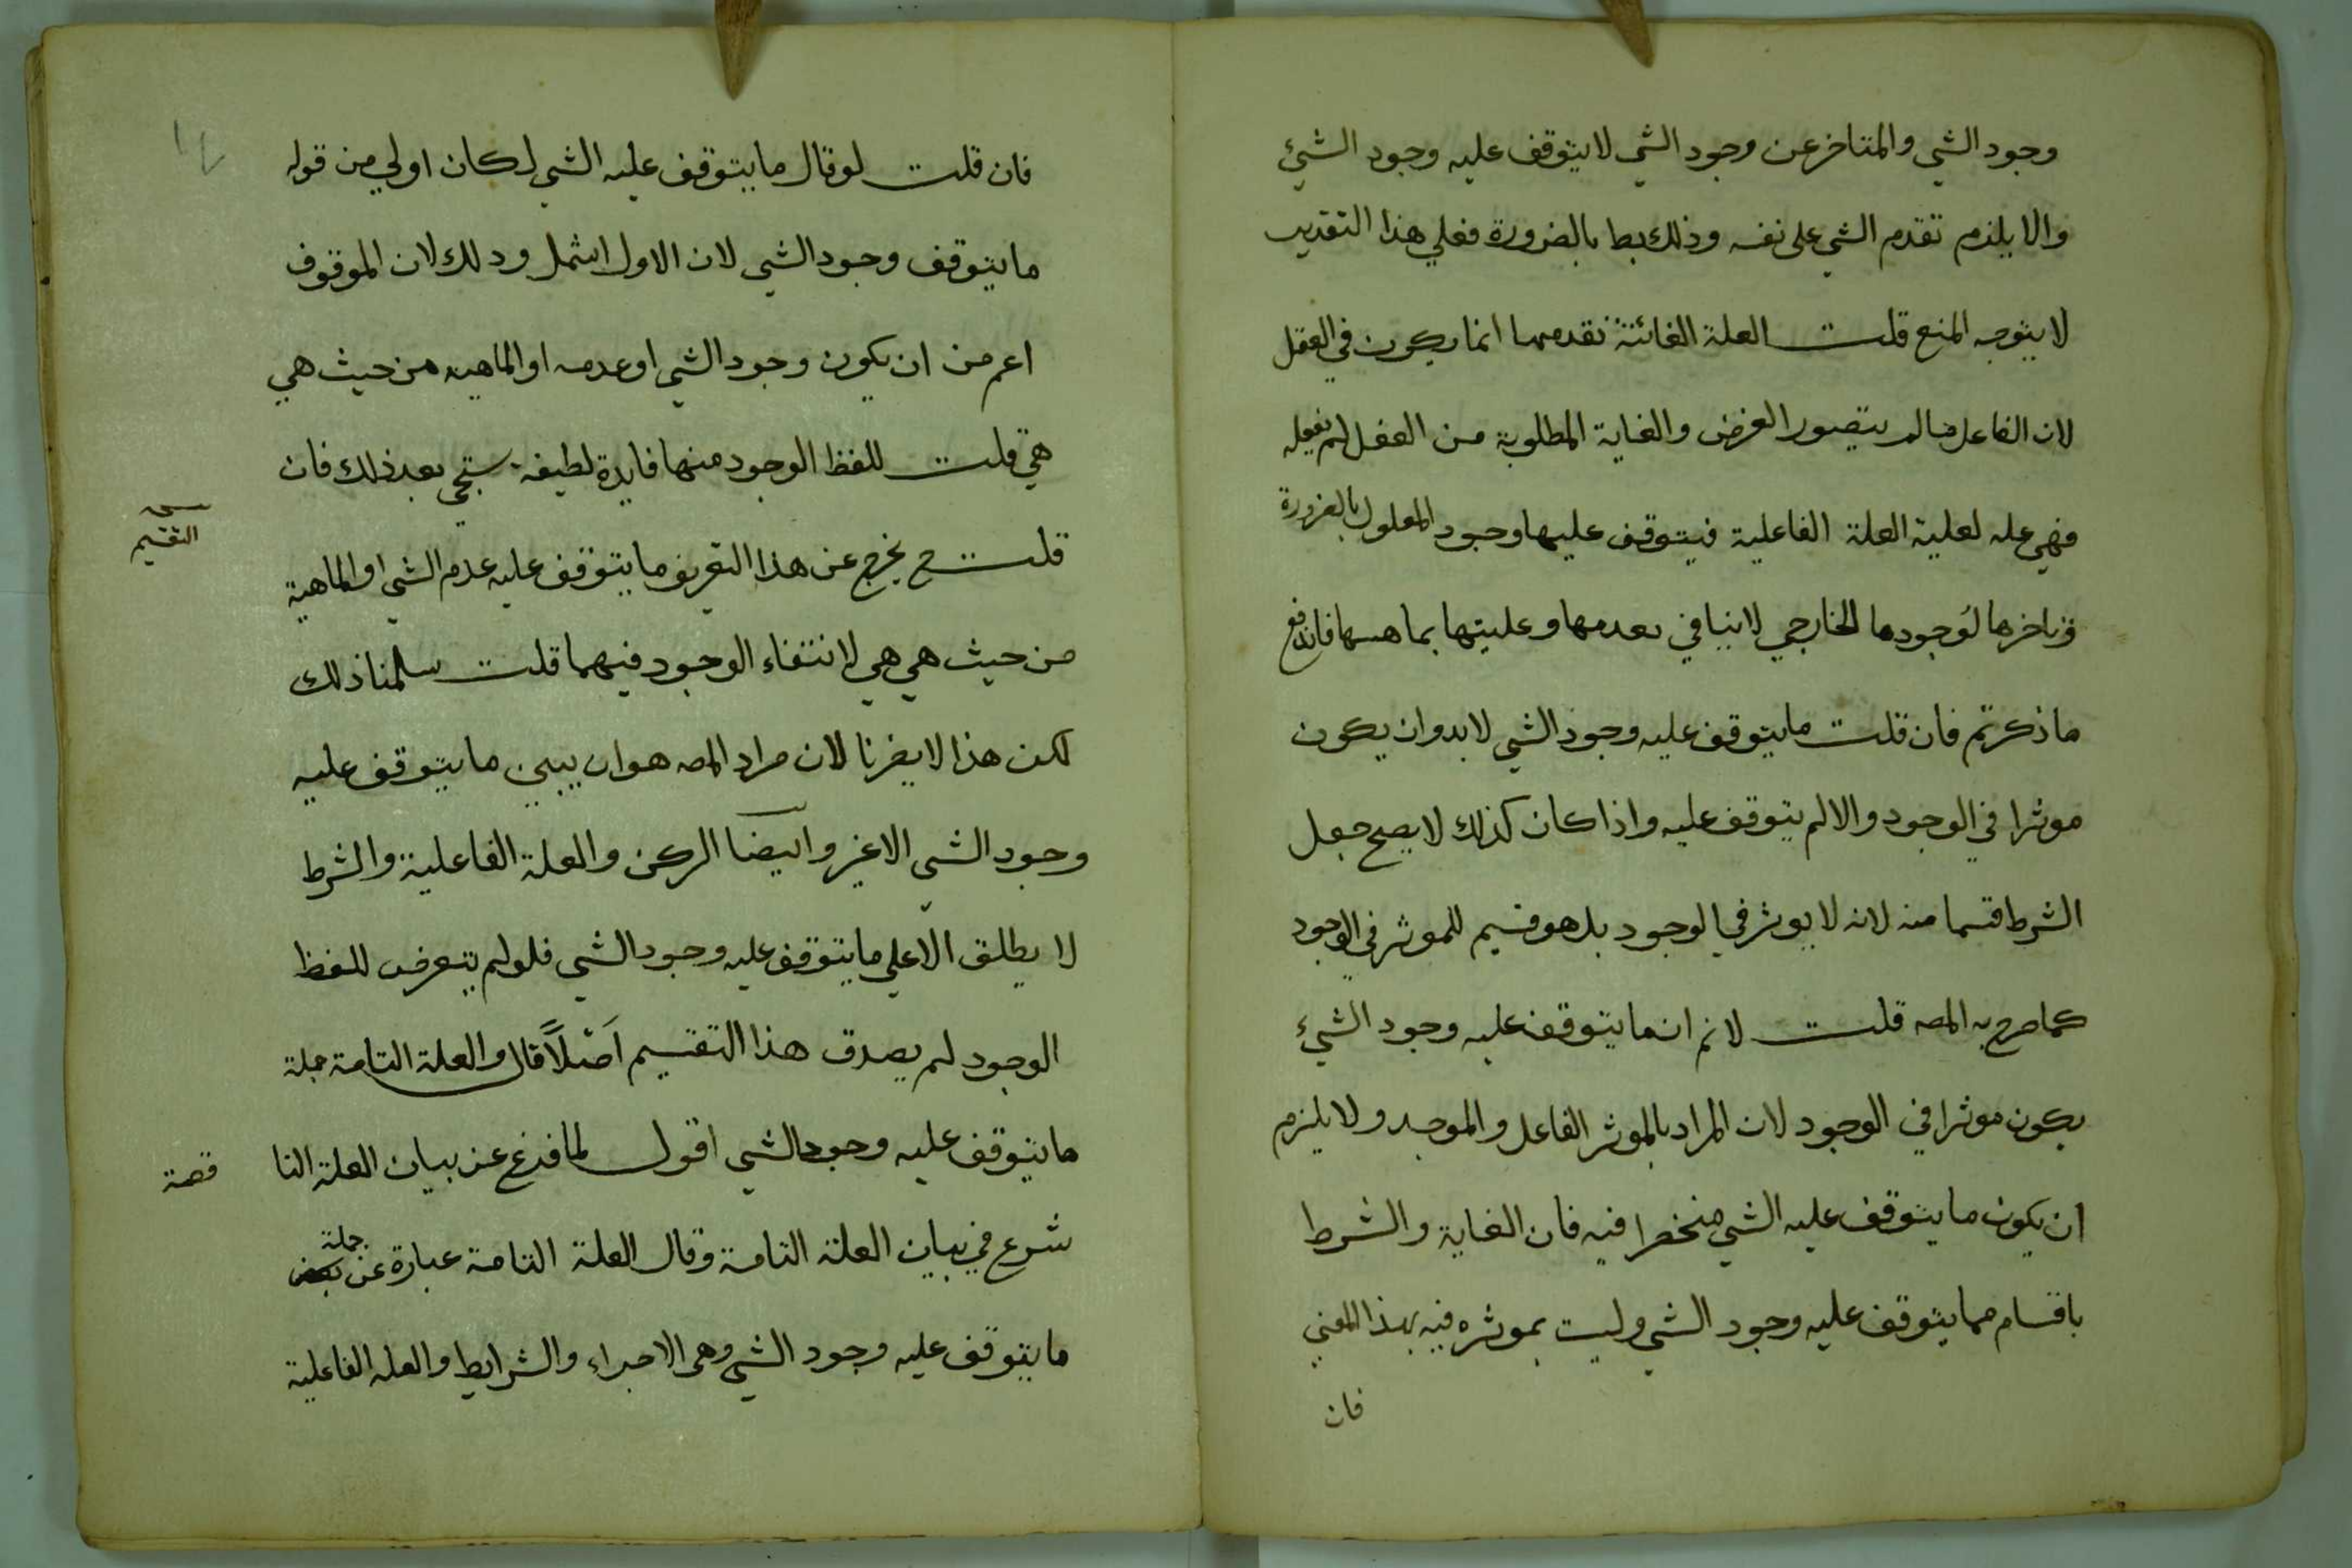 وجود الشي والمتاخر عن وجود الشي لا يتوقف عليه وجود الشيئ
والا يلزم تقدم الشي على نفسه وذلك بط بالضرورة فعلي هذا التقدير
لا يتوجه المنع قلت العلة الغائية تقدمها انما يكون في العقل
لان الفاعل مالم يتصور الغرض والغاية المطلوبة من الفعل لم يفعله
فهي علة لعلية العلة الفاعلية فيتوقف عليها وجود المعلول بالضرورة
وتاخرها لوجودها الخارجي لا ينافي تقدمها وعليتها بماهيتها فاندفع
ما ذكرتم فان قلت ما يتوقف عليه وجود الشي لابد وان يكون
موثرا في الوجود والا لم يتوقف عليه واذا كان كذلك لا يصح جعل
الشرط قسما منه لانه لا يوثر في الوجود بل هو قسيم للموثر في الوجود
كما صرح به المصه قلت لانم ان ما يتوقف عليه وجود الشيء
يكون موثرا في الوجود لان المراد بالموثر الفاعل والموجد ولا يلزم
ان يكون ما يتوقف عليه الشي منحصرا فيه فان الغاية والشرط
باقسام مما يتوقف عليه وجود الشي وليست بموثره فيه بهذا المعني
فان
فان قلت لو قال ما يتوقف عليه الشي لكان اولي من قوله
ما يتوقف وجود الشي لان الاول اشمل وذلك لان الموقوف
اعم من ان يكون وجود الشي او عدمه او الماهيه من حيث هي
هي قلت للفظ الوجود منها فايدة لطيفه ستجي بعد ذلك فان
قلت ح يخرج عن هذا التعريف ما يتوقف عليه عدم الشي او الماهية
التقسيم
من حيث هي هي لانتفاء الوجود فيهما قلت سلمنا ذلك
لكن هذا لا يضرنا لان مراد المصه هو ان يبين ما يتوقف عليه
وجود الشي لا غير وايضا الركن والعلة الفاعلية والشرط
لا يطلق الا علي ما يتوقف عليه وجود الشي فلو لم يتعرض للفظ
الوجود لم يصدق هذا التقسيم اصلا قال والعلة التامة جملة
ما يتوقف عليه وجود الشي اقول لما فرغ عن بيان العلة النا
قصة
شرع في بيان العلة التامة وقال العلة التامة عبارة عن جملة
ما يتوقف عليه وجود الشي وهي الاجزاء والشرايط والعله الفاعلية